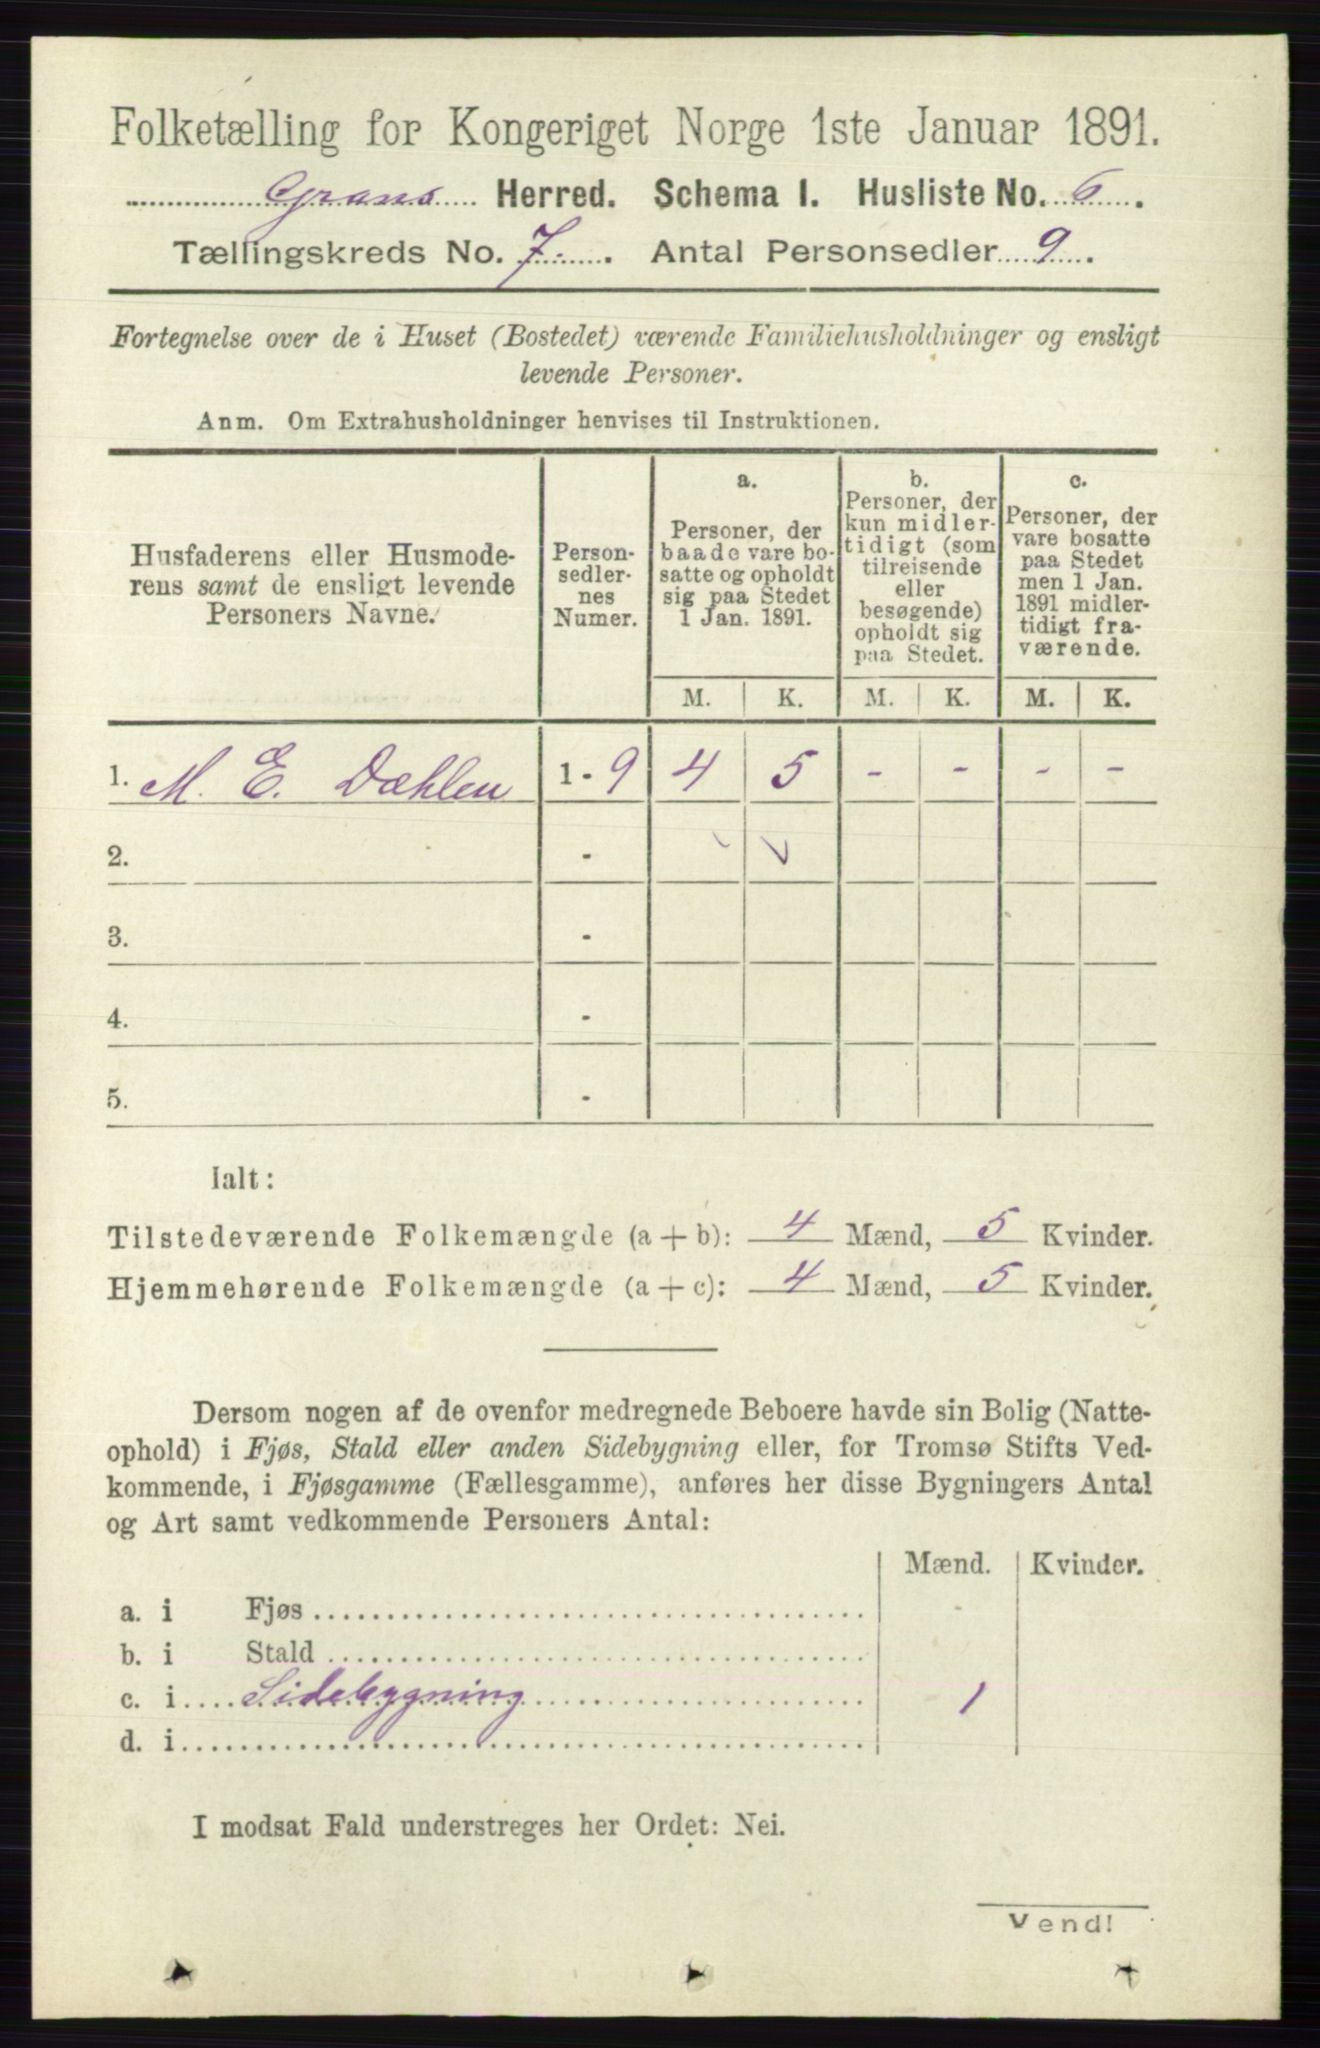 Folketælling for Kongeriget Norge 1ste Januar 1891.
Grans Herred. Schema I. Husliste No. 6.
Tællingskreds No. 7. Antal Personsedler 9.
Fortegnelse over de i Huset (Bostedet) værende Familiehusholdninger og ensligt
levende Personer.
Anm. Om Extrahusholdninger henvises til Instruktionen.
Husfaderens eller Husmode-
rens samt de ensligt levende
Personers Navne.
Person-
sedler-
nes
Numer.
a.
Personer, der
baade vare bo-
satte og opholdt
sig paa Stedet
1 Jan. 1891.
b.
Personer, der
kun midler-
tidigt (som
tilreisende
eller
besøgende)
opholdt sig
paa Stedet.
c.
Personer, der
vare bosatte
paa Stedet
men 1 Jan.
1891 midler-
tidigt fra-
værende.
M. K. M. K. M. K.
1. M. E. Dæhlen 1 - 9 4 5 - - - -
2. -
3. -
4. -
5. -
Ialt:
Tilstedeværende Folkemængde (a + b): 4 Mænd, 5 Kvinder.
Hjemmehørende Folkemængde (a + c): 4 Mænd, 5 Kvinder.
Dersom nogen af de ovenfor medregnede Beboere havde sin Bolig (Natte-
ophold) i Fjøs, Stald eller anden Sidebygning eller, for Tromsø Stifts Ved-
kommende, i Fjøsgamme (Fællesgamme), anføres her disse Bygningers Antal
og Art samt vedkommende Personers Antal:
Mænd. Kvinder.
a. i Fjøs
b. i Stald
c. i Sidebygning 1
d. i
I modsat Fald understreges her Ordet: Nei.
Vend!